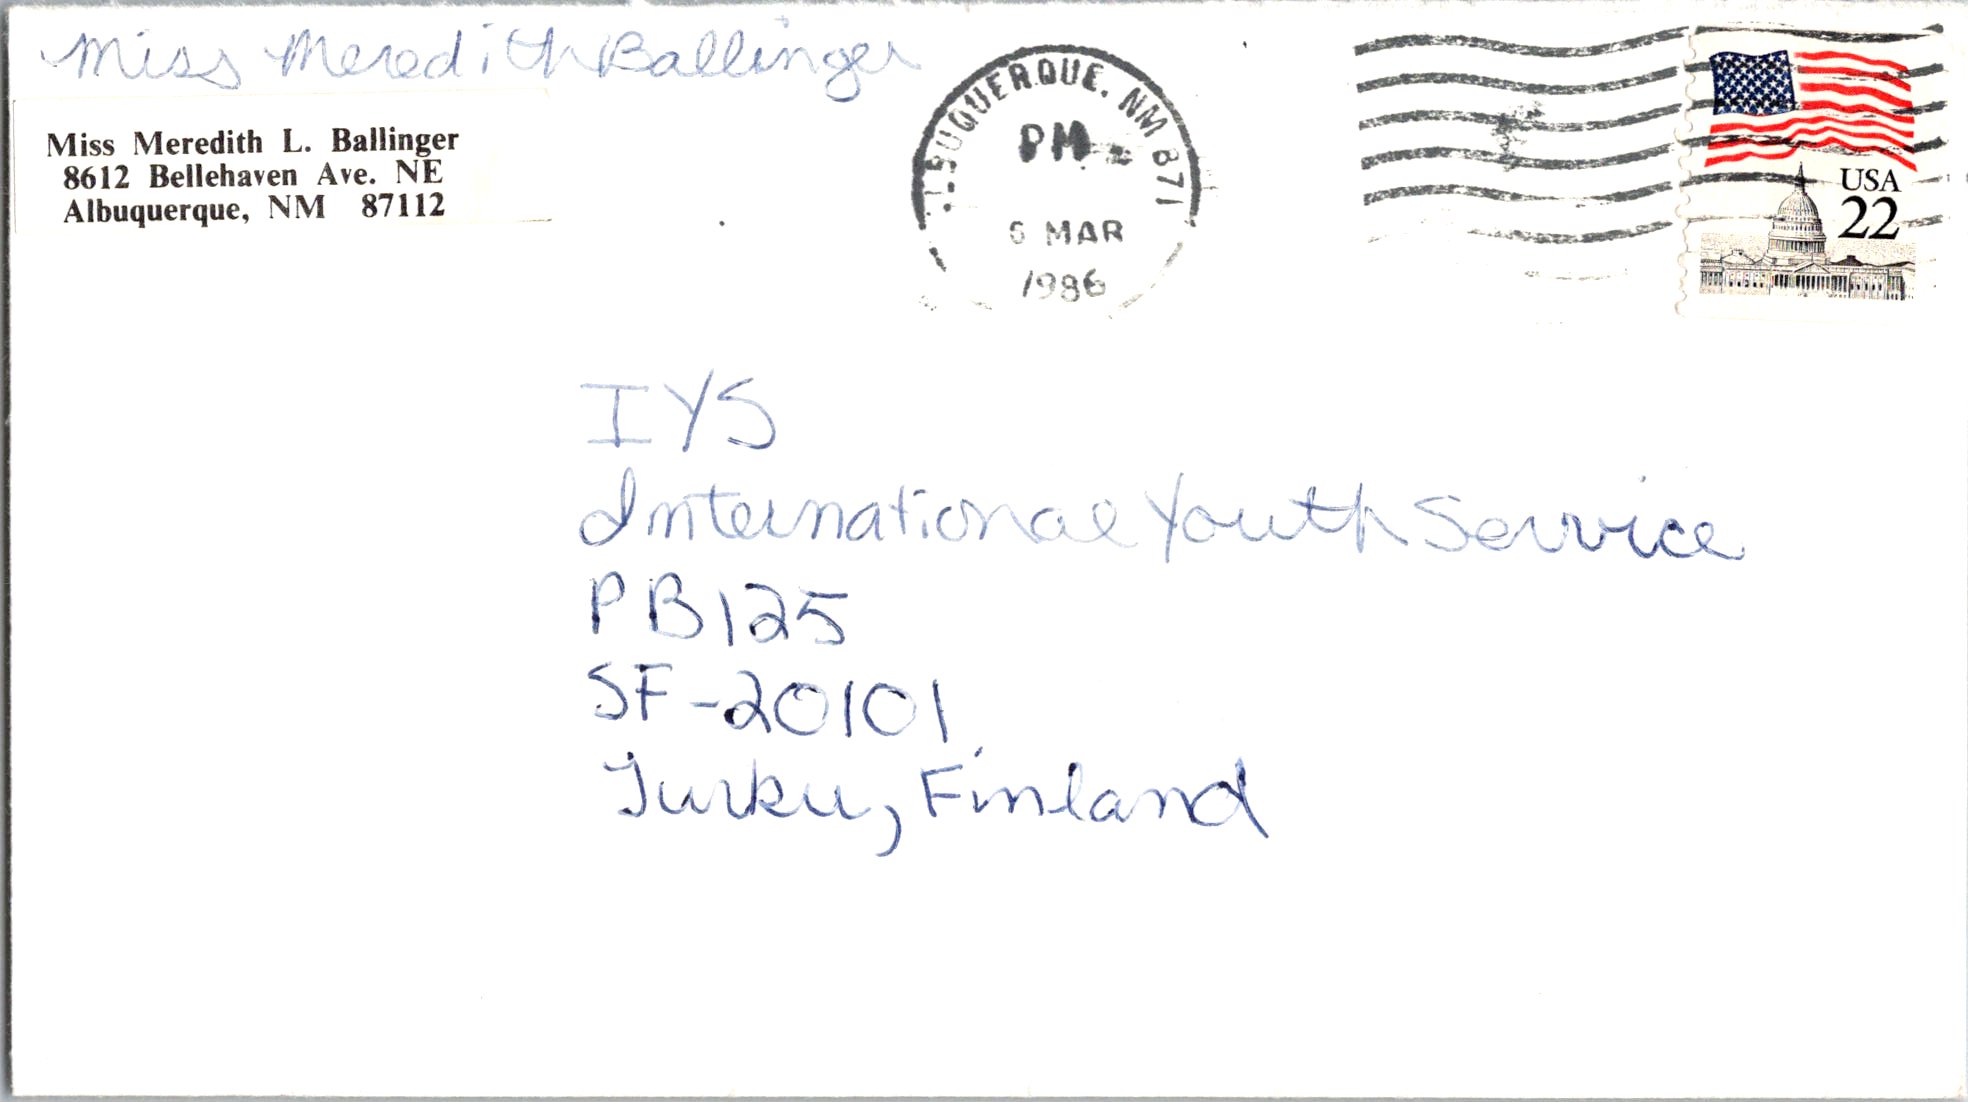 Miss Meredith Ballinger
Miss Meredith L. Ballinger
8612 Bellehaven Ave. NE
Albuquerque, NM 87112
BUQUERQUE, NM 871
PM
6 MAR
1986
USA
22
IYS
International Youth Service
PB 125
SF-20101
Turku, Finland